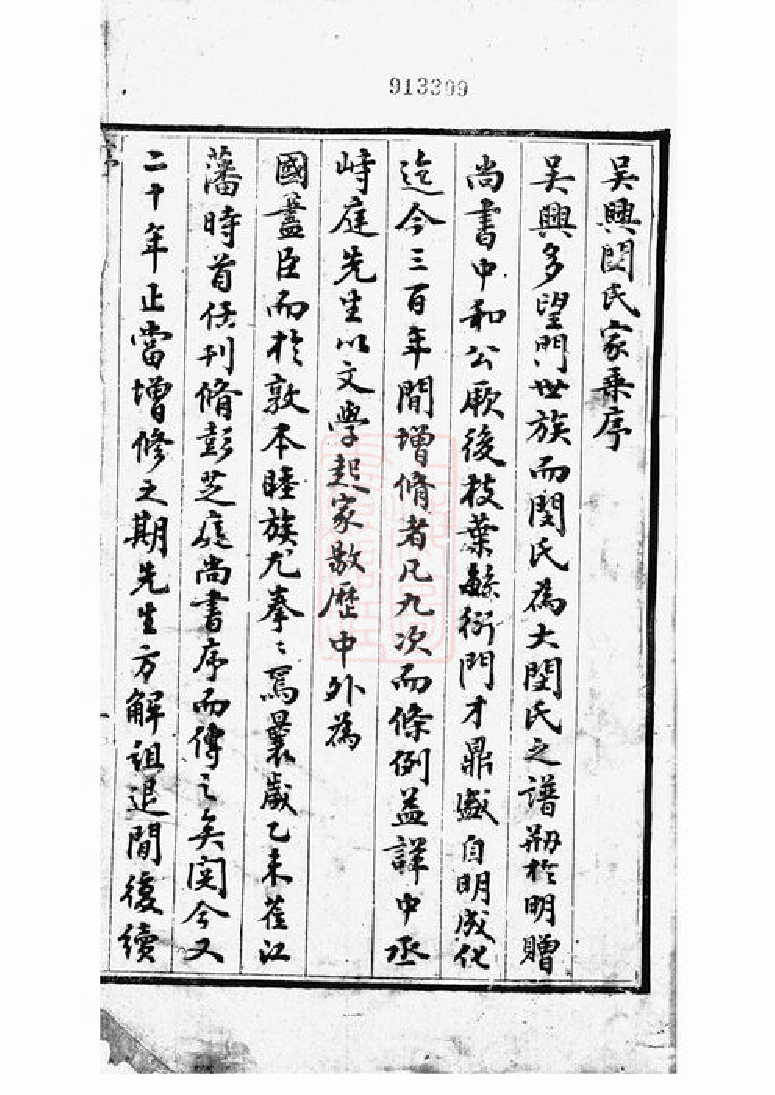 913309
吳興閔氏家乘序
吳興多望門世族而閔氏為大閔氏之譜刱於明贈
尚書中和公厥後枝葉緐衍門才鼎盛自明成化
迄今三百年間增脩者凡九次而條例益詳中丞
峙庭先生以文學起家敭歷中外為
國藎臣而於敦本睦族尤拳〻焉曩歲乙未在江
藩時首任刊脩彭芝庭尚書序而傳之矣閱今又
二十年正當增修之期先生方解組退閒復續
序
一